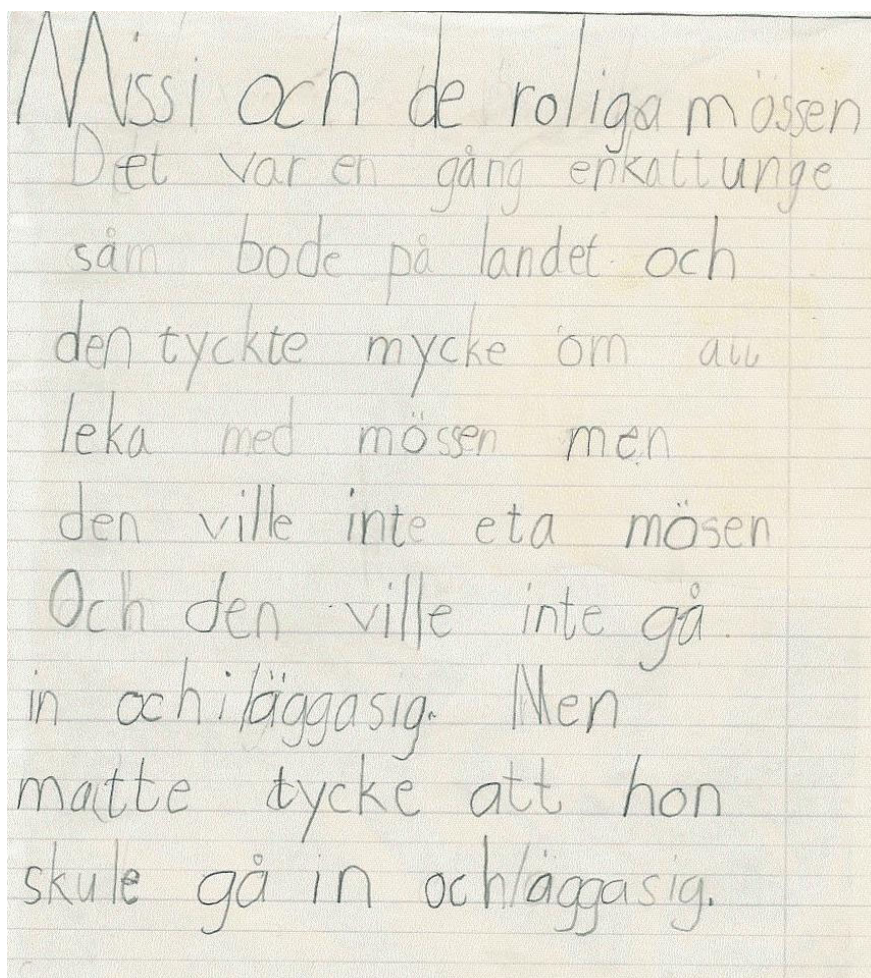 Missi och de roliga mössen
Det var en gång enkattunge
såm bode på landet och
den tyckte mycke om att
leka med mössen men
den ville inte eta mösen
Och den ville inte gå
in ochiläggasig. Men
matte tycke att hon
skule gå in ochläggasig.